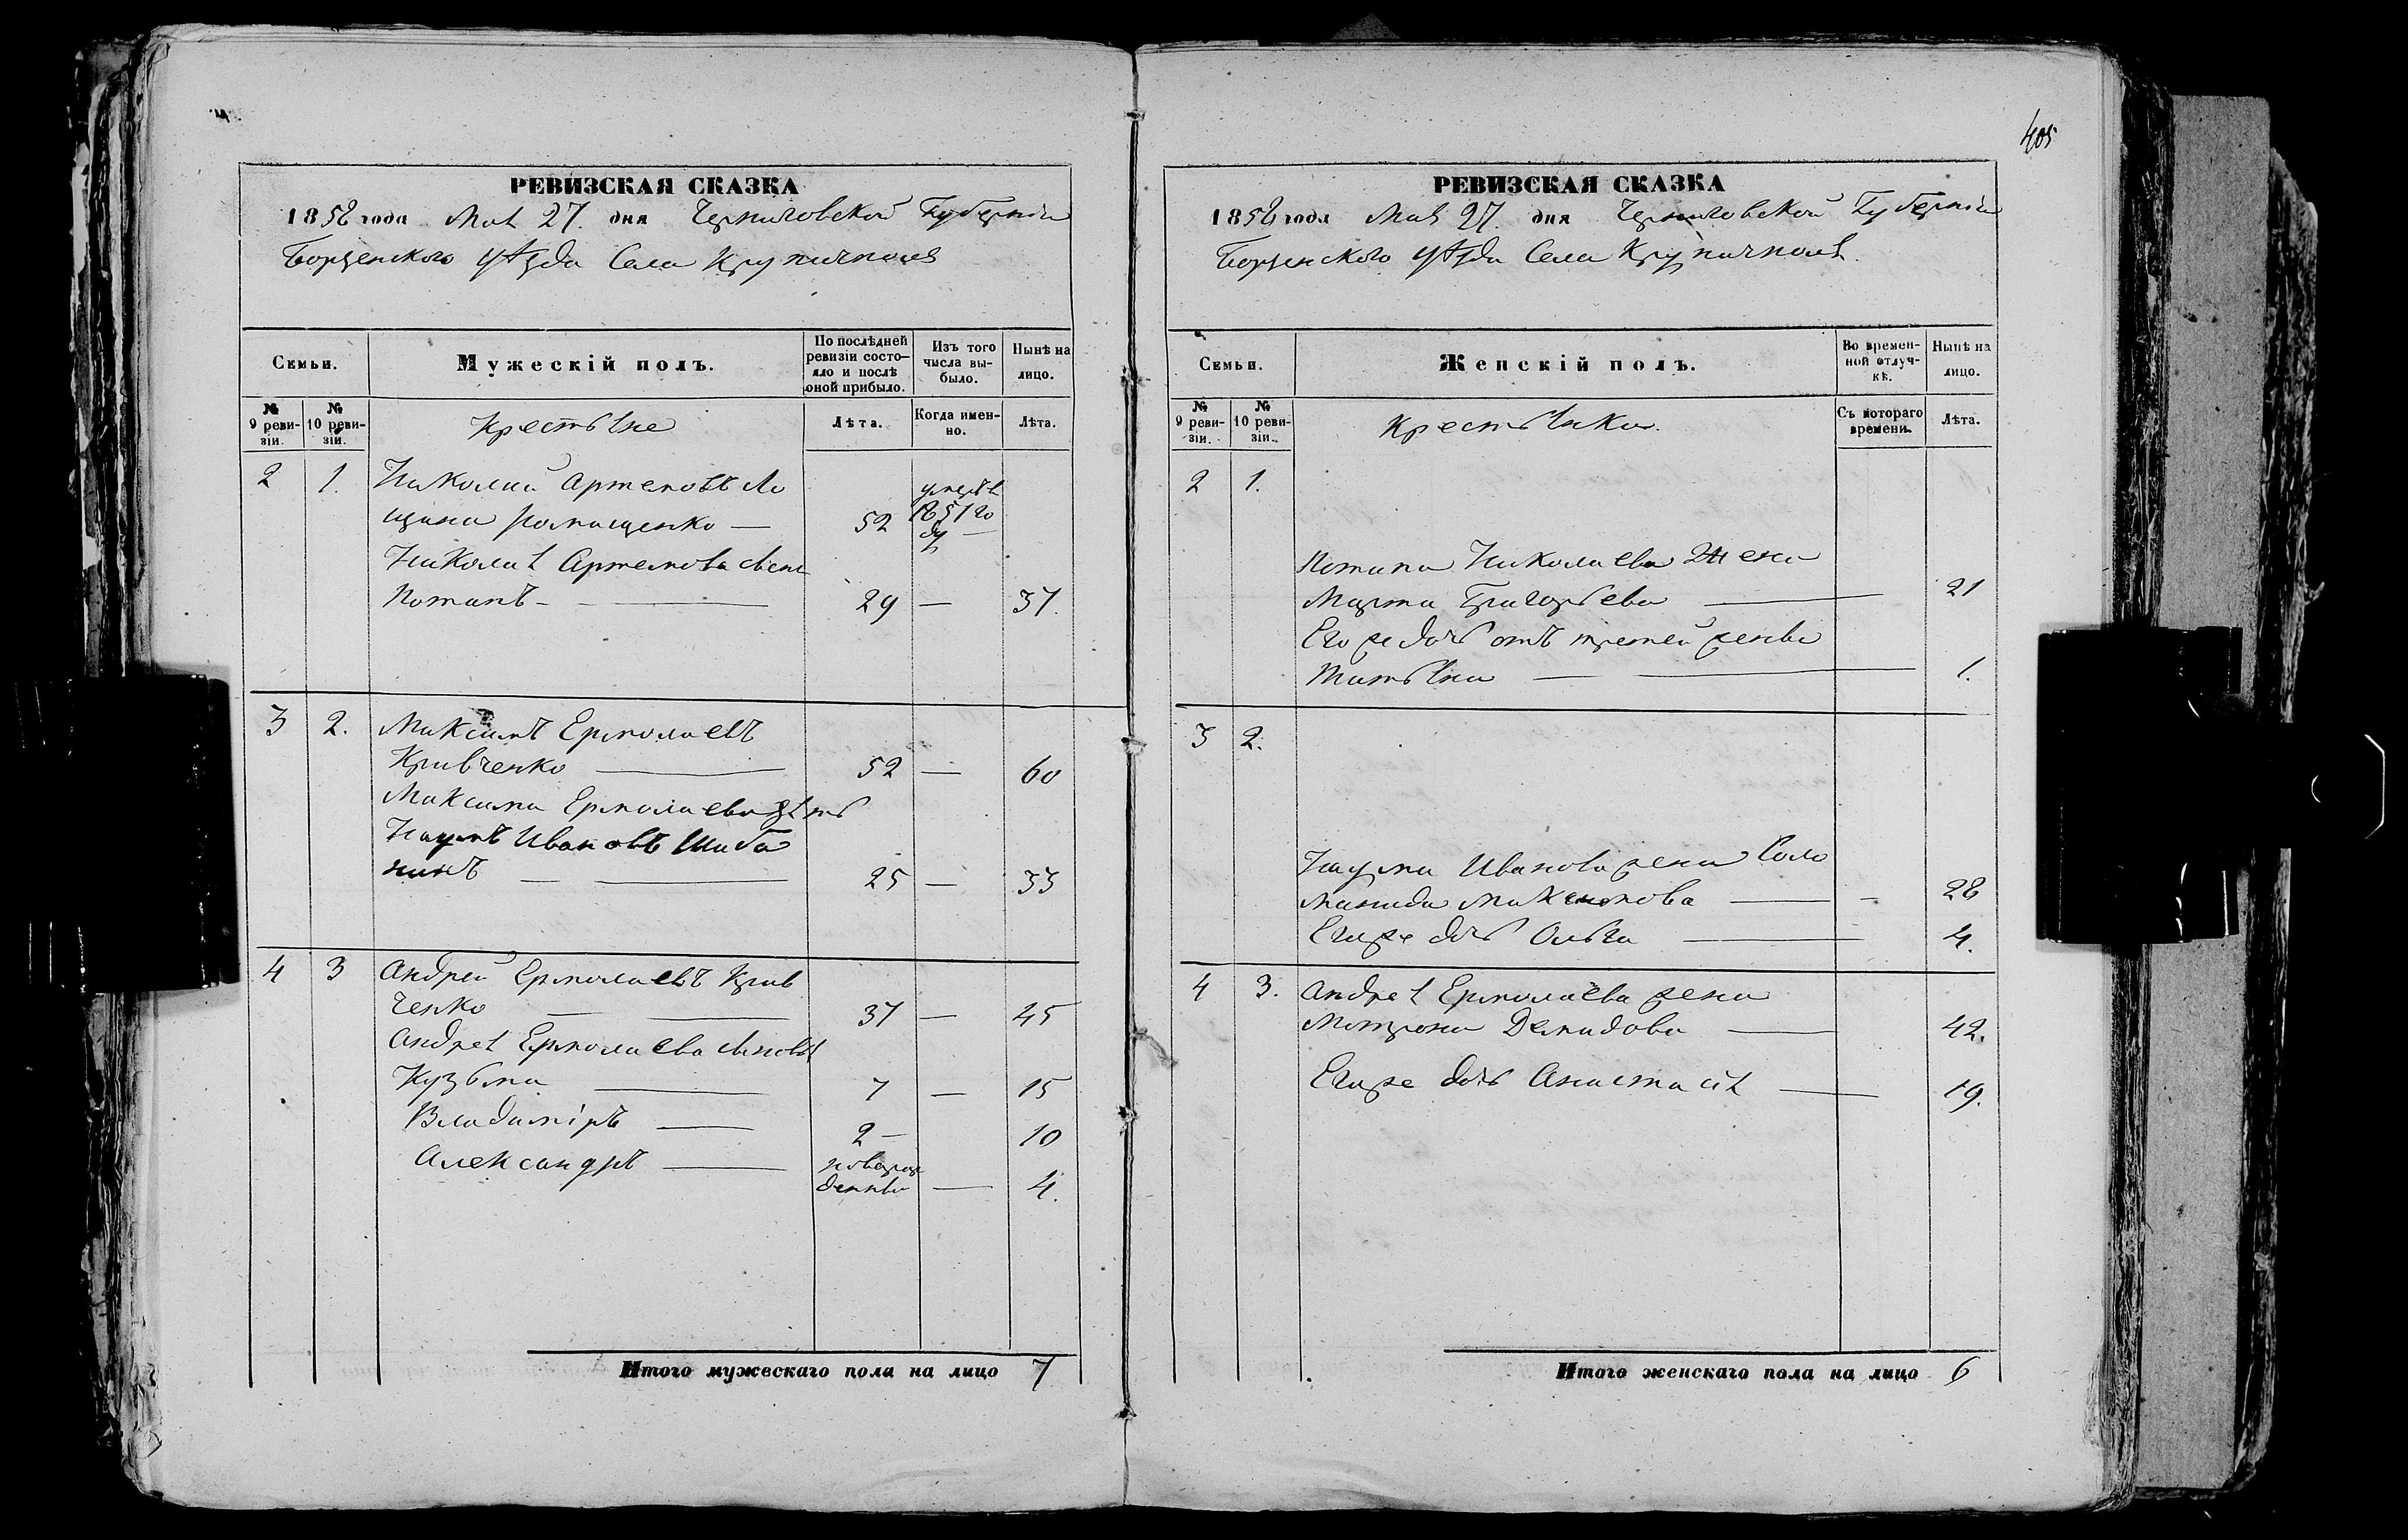 405
РЕВИЗСКАЯ СКАЗКА
1858 года Мая 27. дня Черниговской Губерніи
Борзенского уѣзда Села Крупичполя
Семьи.
Мужескій полъ.
По послѣдней ревизіи состояло и послѣ оной прибыло.
Изъ того числа выбыло.
Нынѣ на лицо.
№ 9 ревизіи.
№ 10 ревизіи.
Крестьяне
Лѣта.
Когда именно.
Лѣта.
2 1. Николай Артемовъ
52 умеръ 1851 году —
Николая Артемова сынъ
Потапъ — 29 — 37.
3 2. Максимъ Ермолаевъ
Кривченко — 52 — 60
Максима Ермолаева зять
Наумъ Ивановъ Шаба
нинъ — 25 — 33
4 3 Андрей Ермолаевъ Крив
ченко — 37 — 45
Андрея Ермолаева сыновья
Кузьма — 7 — 15
Владиміръ — 2 — 10
Александръ — новорож
денный — 4.
Итого мужескаго пола на лицо 7
РЕВИЗСКАЯ СКАЗКА
1858 года Мая 27. дня Черниговской Губерніи
Борзенского уѣзда Села Крупичполя.
Семьи.
Женскій полъ.
Во временной отлучкѣ.
Нынѣ на лицо.
№ 9 ревизіи.
№ 10 ревизіи.
Крестьянки.
Съ котораго времени.
Лѣта.
2 1.
Потапа Николаева жена
Марта Григорьева — 21
Его же дочь отъ третей жены
Татьяна — 1.
3 2.
Наума Иванова жена Соло
манида Максимова — 28
Егоже дочь Ольга — 4.
4 3. Андрея Ермолаева жена
Мотрона Демидова — 42.
Егоже дочь Анастасія — 19.
Итого женскаго пола на лицо 6